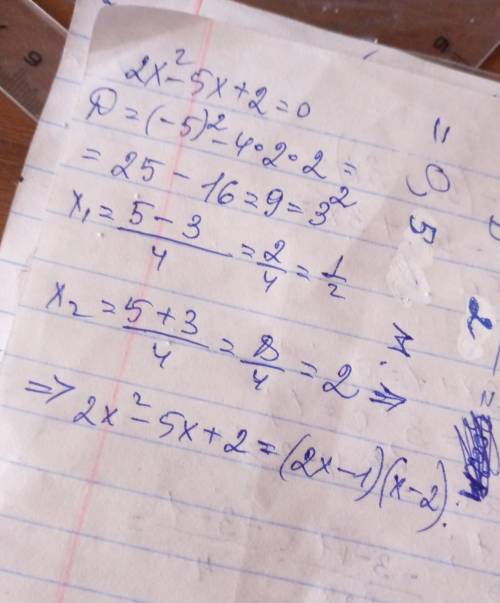 2x² - 5x + 2 = 0
D = (-5)² - 4·2·2 =
= 25 - 16 = 9 = 3²
x₁ = (5 - 3)/4 = 2/4 = 1/2
x₂ = (5 + 3)/4 = 8/4 = 2 ⇒
⇒ 2x² - 5x + 2 = (2x - 1)(x - 2).